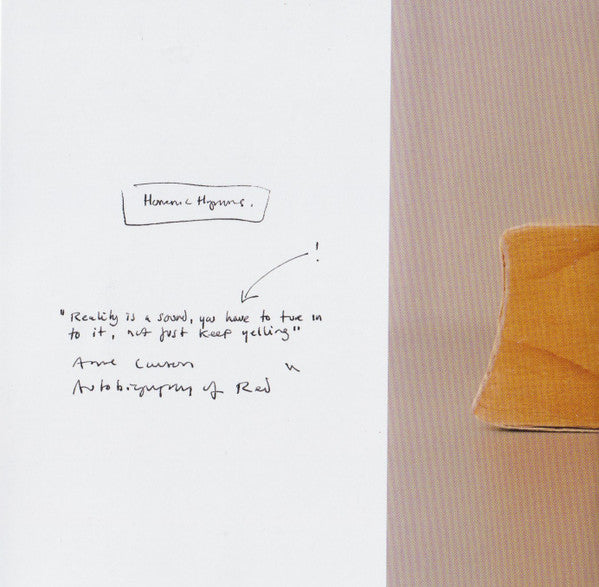 Homeric Hymns.
!
"Reality is a sound, you have to tune in
to it, not just keep yelling"
Anne Carson
Autobiography of Red